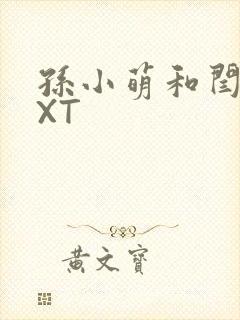 孫小萌和閆
XT
黄文寶